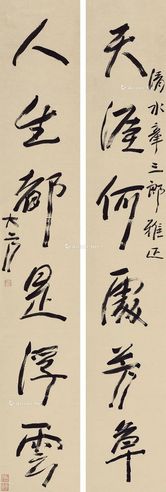 天涯何處芳草
清水章三郎雅正
人生都是浮雲
大可